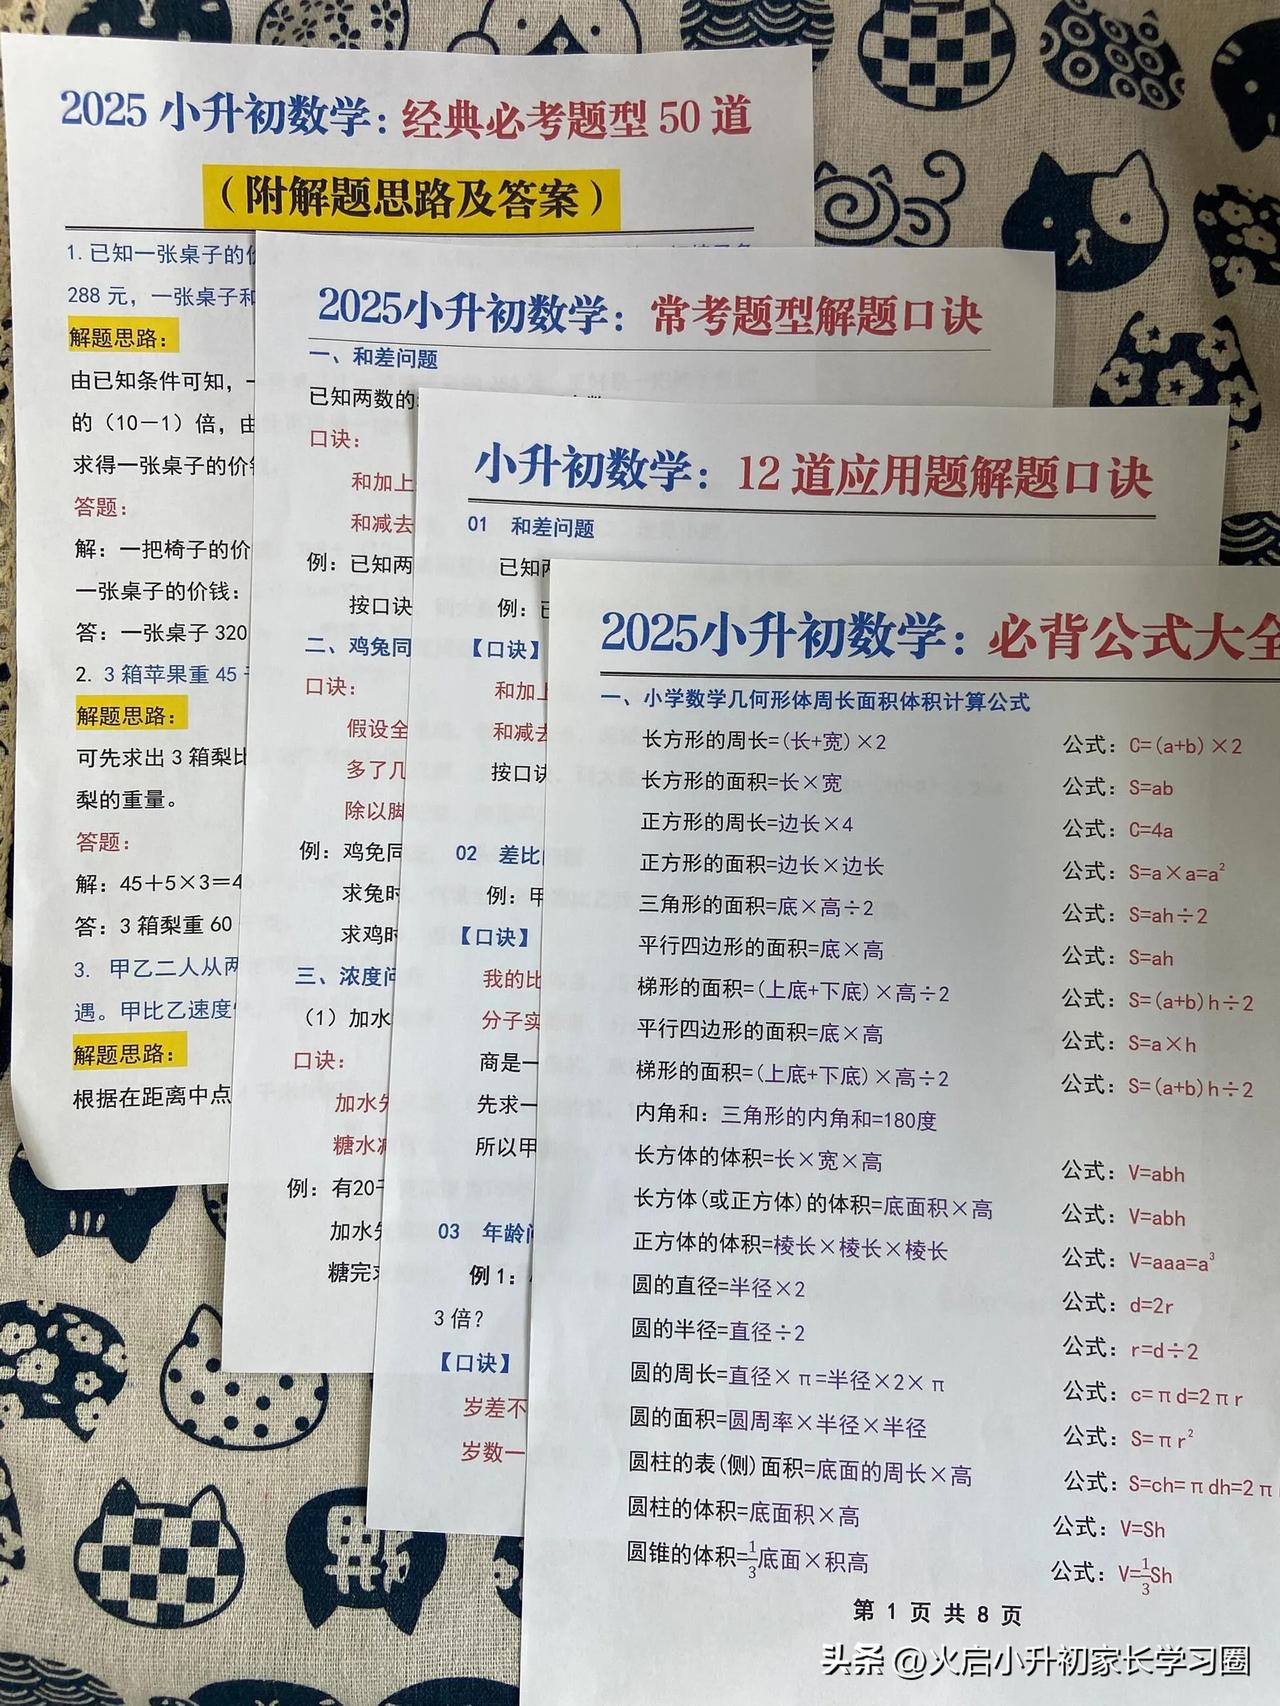 2025 小升初数学：经典必考题型 50 道
（附解题思路及答案）
1. 已知一张桌子的价
288 元，一张桌子和
解题思路：
由已知条件可知，一
的（10－1）倍，由
求得一张桌子的价钱
答题：
解：一把椅子的价
一张桌子的价钱：
答：一张桌子 320
2. 3 箱苹果重 45 千
解题思路：
可先求出 3 箱梨比
梨的重量。
答题：
解：45＋5×3＝4
答：3 箱梨重 60
3. 甲乙二人从两
遇。甲比乙速度
解题思路：
根据在距离中点
2025小升初数学：常考题型解题口诀
一、和差问题
已知两数的
口诀：
和加上
和减去
例：已知两
按口诀
二、鸡兔同
口诀：
假设全
多了几
除以脚
例：鸡免同
求兔时
求鸡时
三、浓度问
（1）加水
口诀：
加水先
糖水减
例：有20千
加水先
糖完求
小升初数学：12 道应用题解题口诀
01 和差问题
已知两
例：已
【口诀】
和加上
和减去
按口诀
02 差比
例：甲
【口诀】
我的比
分子实
商是一
先求一
所以甲
03 年龄问
例 1：
3 倍？
【口诀】
岁差不
岁数一
2025小升初数学：必背公式大全
一、小学数学几何形体周长面积体积计算公式
长方形的周长=(长+宽)×2 公式：C=(a+b)×2
长方形的面积=长×宽 公式：S=ab
正方形的周长=边长×4 公式：C=4a
正方形的面积=边长×边长 公式：S=a×a=a²
三角形的面积=底×高÷2 公式：S=ah÷2
平行四边形的面积=底×高 公式：S=ah
梯形的面积=(上底+下底)×高÷2 公式：S=(a+b)h÷2
平行四边形的面积=底×高 公式：S=a×h
梯形的面积=(上底+下底)×高÷2 公式：S=(a+b)h÷2
内角和：三角形的内角和=180度
长方体的体积=长×宽×高 公式：V=abh
长方体(或正方体)的体积=底面积×高 公式：V=abh
正方体的体积=棱长×棱长×棱长 公式：V=aaa=a³
圆的直径=半径×2 公式：d=2r
圆的半径=直径÷2 公式：r=d÷2
圆的周长=直径×π=半径×2×π 公式：c=πd=2πr
圆的面积=圆周率×半径×半径 公式：S=πr²
圆柱的表(侧)面积=底面的周长×高 公式：S=ch=πdh=2π
圆柱的体积=底面积×高 公式：V=Sh
圆锥的体积=1/3底面×积高 公式：V=1/3Sh
第 1 页 共 8 页
头条 @火启小升初家长学习圈